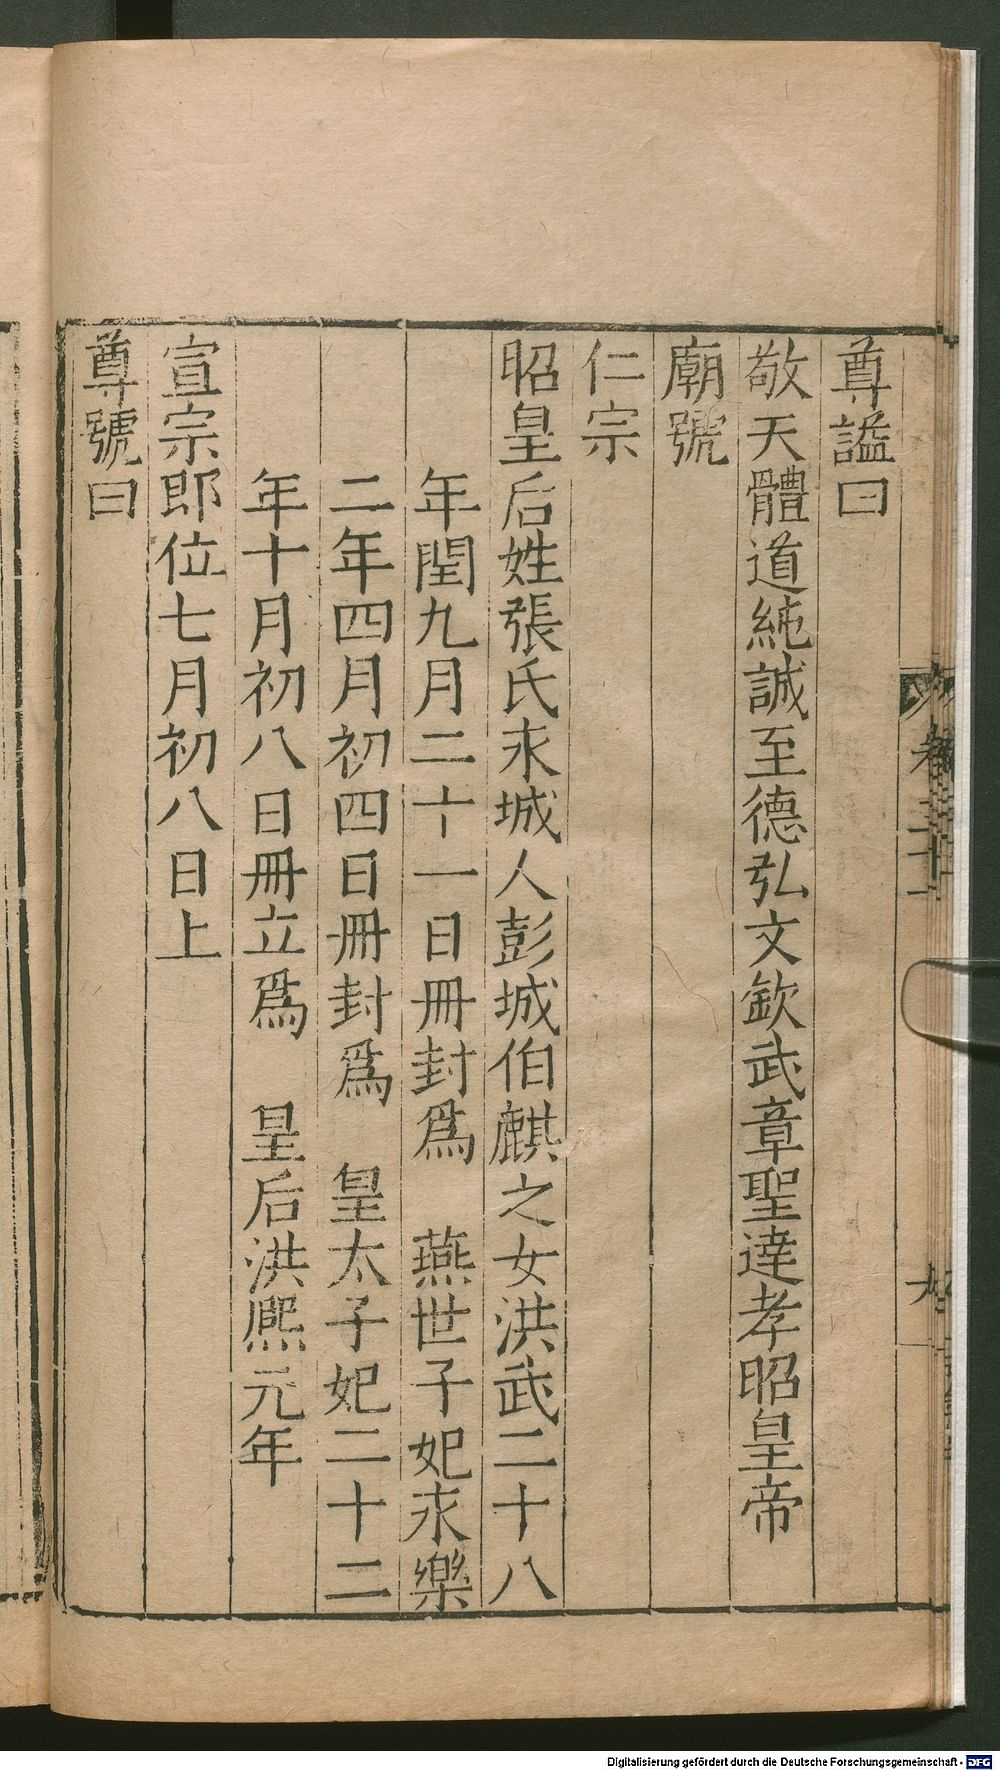 尊謚曰
敬天體道純誠至德弘文欽武章聖達孝昭皇帝
廟號
仁宗
昭皇后姓張氏永城人彭城伯麒之女洪武二十八
年閏九月二十一日冊封爲 燕世子妃永樂
二年四月初四日冊封爲 皇太子妃二十二
年十月初八日冊立爲 皇后洪熙元年
宣宗即位七月初八日上
尊號曰
Digitalisierung gefördert durch die Deutsche Forschungsgemeinschaft - DFG